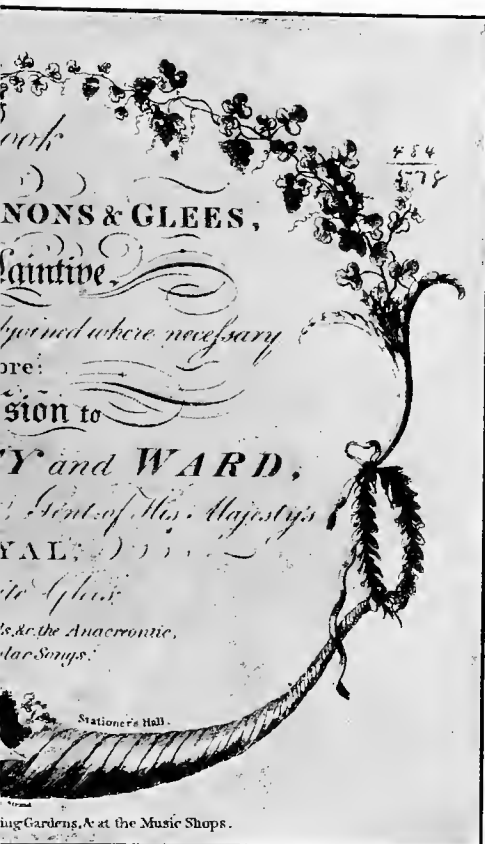 ook
484
578
NONS & GLEES,
laintive.
bjoined where necessary
ore:
sion to
Y and WARD,
Gent. of His Majesty's
YAL,
ite Glees
ls, &c. the Anacreontic,
ular Songs.
Stationer's Hall.
Strand
ing Gardens, & at the Music Shops.